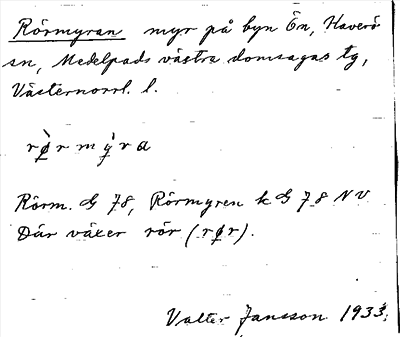 Rörmyran myr på byn Ön, Haverö
sn, Medelpads västra domsagas tg,
Västernorrl. l.
rø̀rmýra
Rörm. G 78, Rörmyren k G 78 NV
Där växer rör (rør).
Valter Jansson 1933.